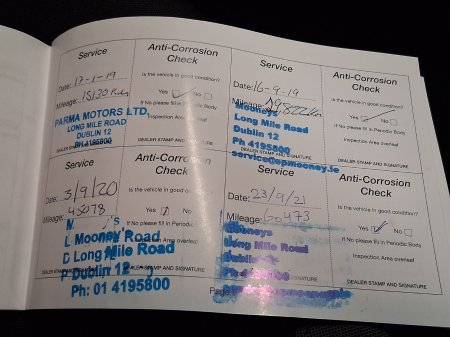 Service
Date: 17-1-19
Mileage: 15130
PARMA MOTORS LTD,
LONG MILE ROAD
DUBLIN 12
PH 4195800
Anti-Corrosion
Check
Is the vehicle in good condition?
Yes No
If No please fill in Periodic Body
Inspection Area overleaf
DEALER STAMP AND SIGNATURE
Service
Date: 16-9-19
Mileage:
Mooneys
Long Mile Road
Dublin 12
Ph 4195800
service@spmooney.ie
Anti-Corrosion
Check
Is the vehicle in good condition?
Yes No
If No please fill in Periodic Body
Inspection Area overleaf
DEALER STAMP AND SIGNATURE
Service
Date: 3/9/20
Mileage: 45078
Mooney Road
Long Mile Road
Dublin 12
Ph: 01 4195800
Anti-Corrosion
Check
Is the vehicle in good condition?
Yes No
If No please fill in Periodic Body
Inspection Area overleaf
DEALER STAMP AND SIGNATURE
Service
Date: 23/9/21
Mileage: 60473
Mooneys
Long Mile Road
Dublin 12
Anti-Corrosion
Check
Is the vehicle in good condition?
Yes No
If No please fill in Periodic Body
Inspection Area overleaf
DEALER STAMP AND SIGNATURE
Page